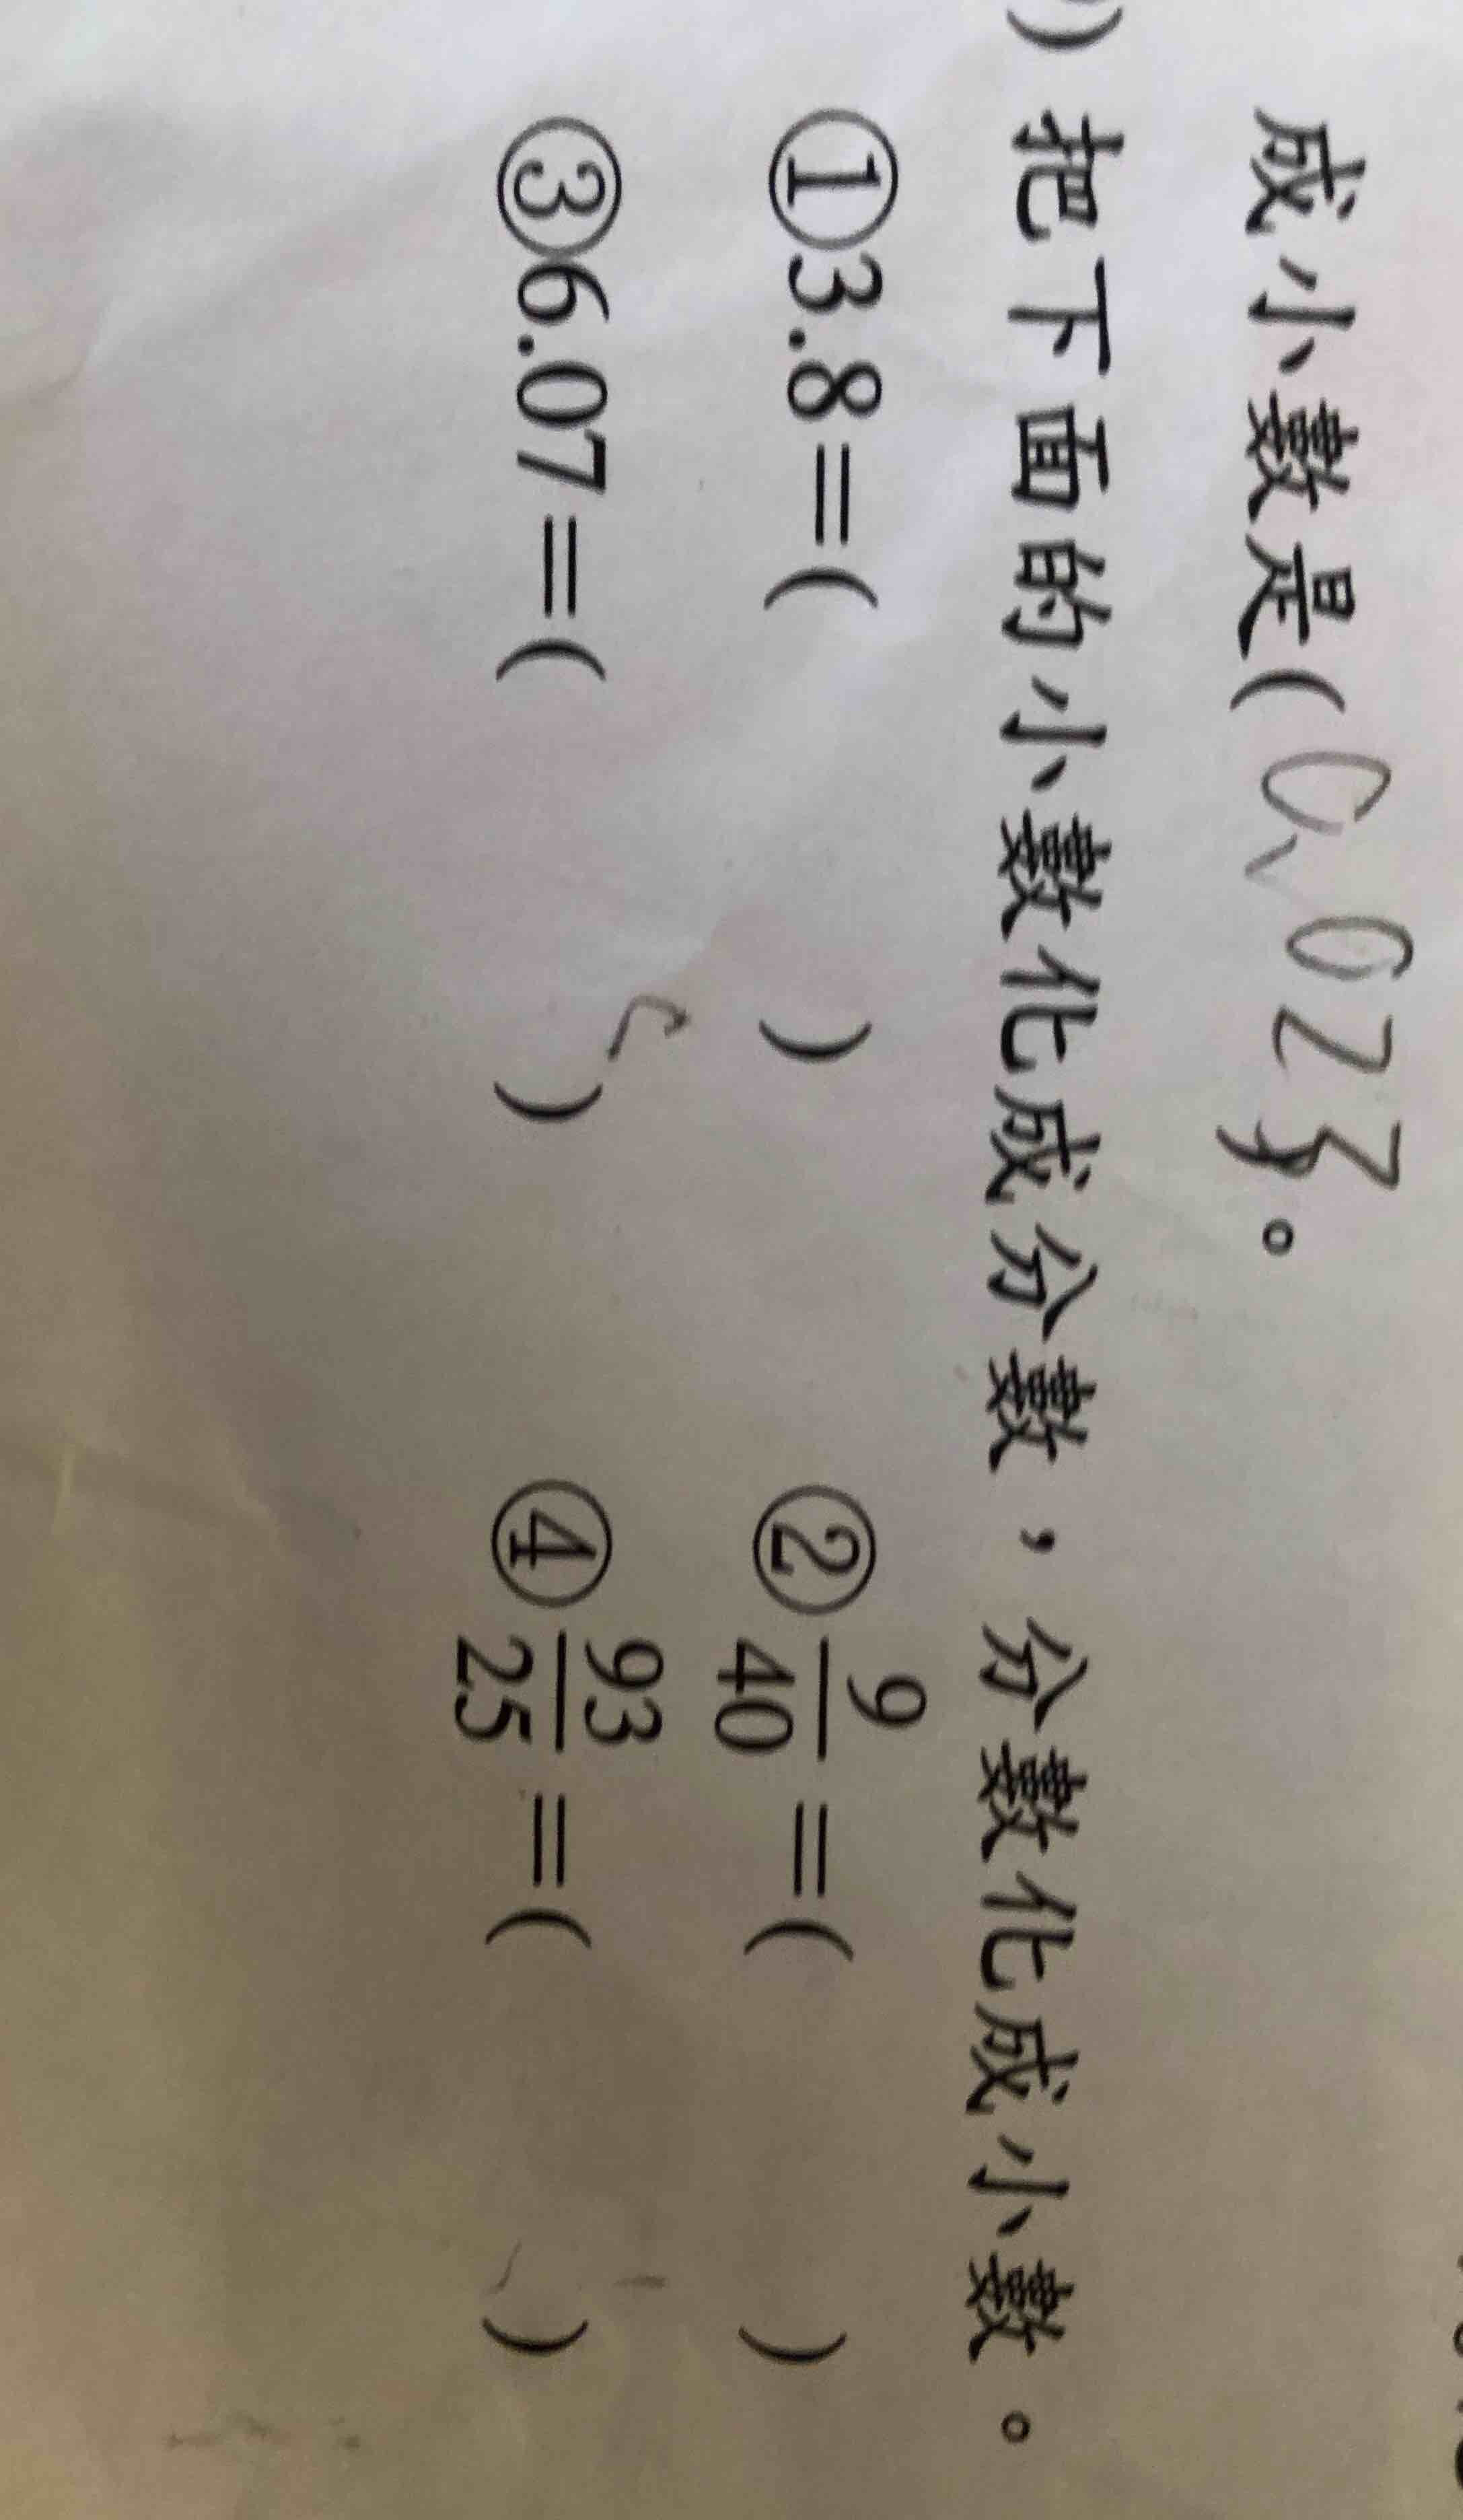 成小数是(0.023)。
)把下面的小数化成分数，分数化成小数。
①3.8=(    ) ②9/40=(    )
③6.07=(    ) ④93/25=(    )